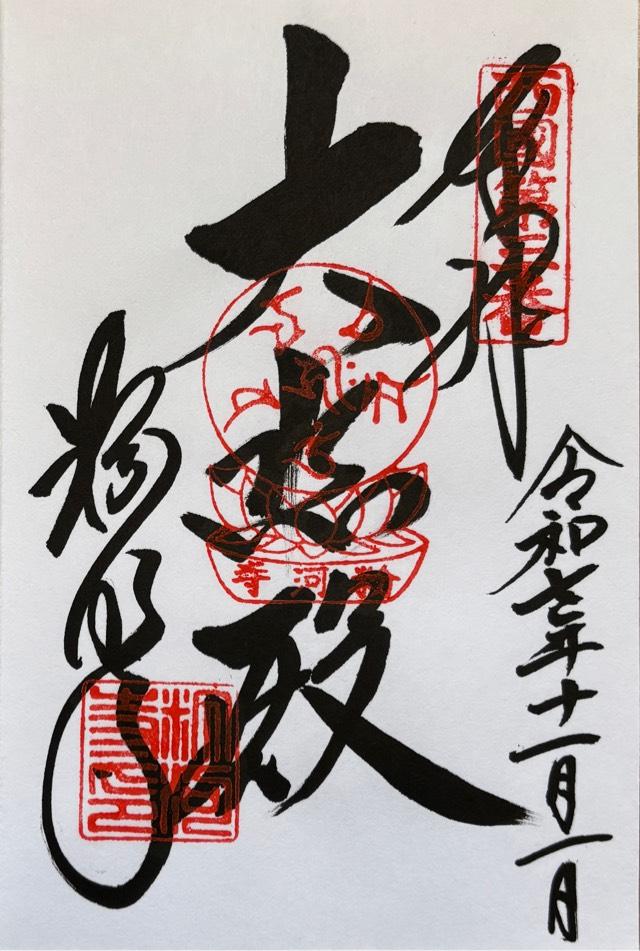 西國第三番
奉拝
令和七年十一月一日
大悲殿
粉河寺
粉河寺